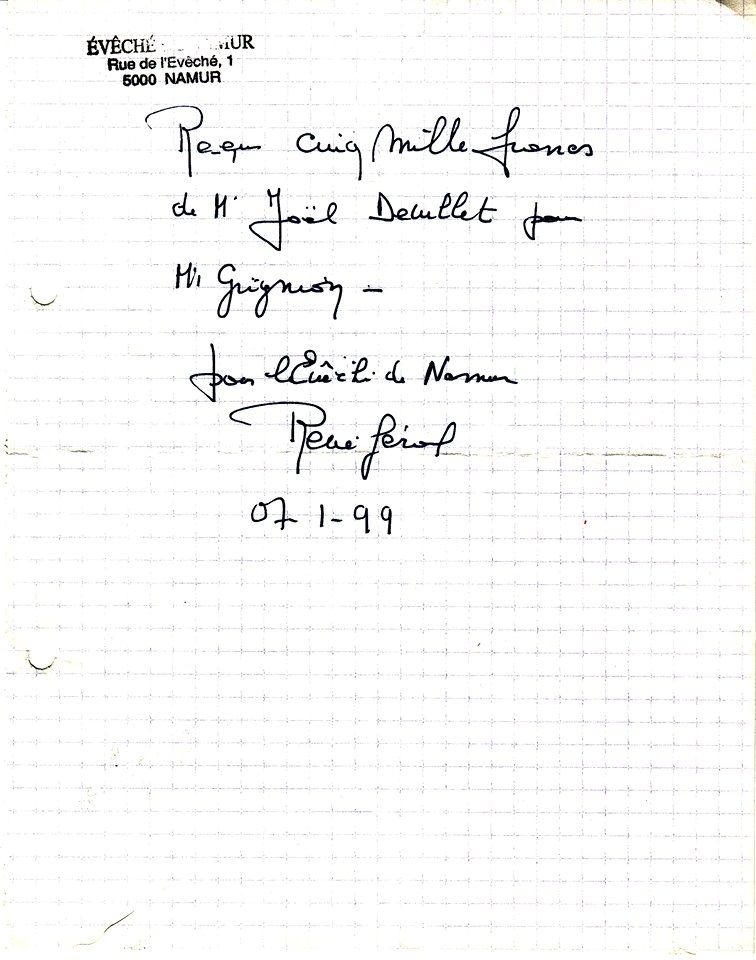 ÉVÊCHÉ MUR
Rue de l'Evêché, 1
5000 NAMUR
Reçu cinq mille francs
de Mr Joël Devillet pour
Mr Grignion -
pour l'Évêché de Namur
René Gérol
07-1-99